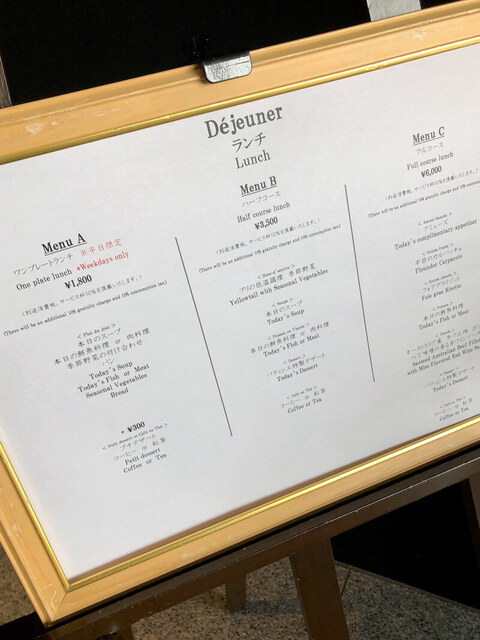 Déjeuner
ランチ
Lunch
Menu A
ワンプレートランチ ※平日限定
One plate lunch *Weekdays only
¥1,800
(別途消費税、サービス料10%を頂戴いたします。)
(There will be an additional 10% gratuity charge and 10% consumption tax)
< Plat du jour >
本日のスープ
本日の鮮魚料理 or 肉料理
季節野菜の付け合わせ
パン
Today's Soup
Today's Fish or Meat
Seasonal Vegetables
Bread
+ ¥300
< Petit dessert et Café ou Thé >
プチデザート
コーヒー or 紅茶
Petit dessert
Coffee or Tea
Menu B
ハーフコース
Half course lunch
¥3,500
(別途消費税、サービス料10%を頂戴いたします。)
(There will be an additional 10% gratuity charge and 10% consumption tax)
< Hors-d'œuvre >
ブリの低温調理 季節野菜
Yellowtail with Seasonal Vegetables
本日のスープ
Today's Soup
< Poisson ou Viande >
本日の鮮魚料理 or 肉料理
Today's Fish or Meat
< Dessert >
パティシエ特製デザート
Today's Dessert
< Café ou Thé >
コーヒー or 紅茶
Coffee or Tea
Menu C
フルコース
Full course lunch
¥6,000
(別途消費税、サービス料10%を頂戴いたします。)
(There will be an additional 10% gratuity charge and 10% consumption
アミューズ
Today's complimentary appetizer
平目のカルパッチョ
Flounder Carpaccio
フォアグラ
Foie gras
本日の鮮魚料理
Today's Fish
Sauteed Australian Beef
with Mini Flavored Red Wine
パティシエ特製デザート
Today's Dessert
コーヒー or 紅茶
Coffee or Tea